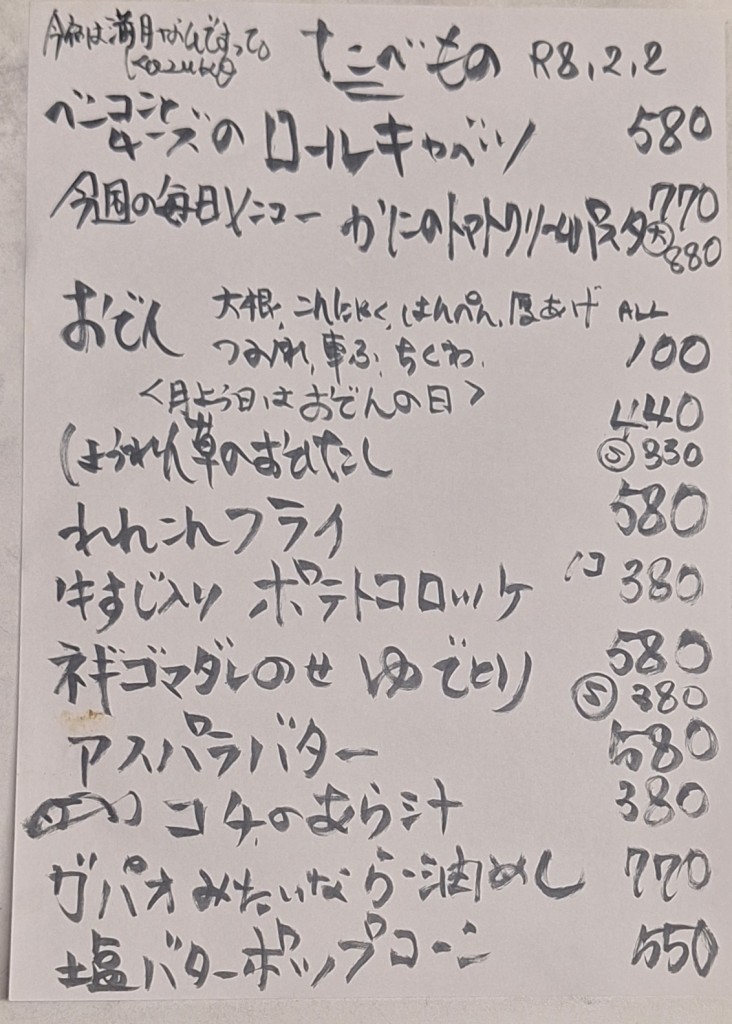 今夜は満月なんですって。
たべもの R8.2.2
ベーコンと
チーズの ロールキャベツ 580
今週の毎日メニュー かにのトマトクリームパスタ 770
大 880
おでん 大根、こんにゃく、はんぺん、厚あげ ALL
つみれ、車ふ、ちくわ 100
<月よう日はおでんの日>
ほうれん草のおひたし 440
S 330
れんこんフライ 580
牛すじ入り ポテトコロッケ 1コ 380
ネギゴマダレのせ ゆでとり 580
S 380
アスパラバター 580
コチのあら汁 380
ガパオみたいなラー油めし 770
塩バターポップコーン 550